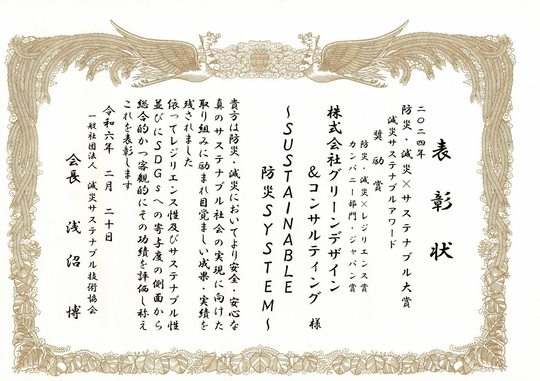 表彰状
二〇二四年
防災・減災×サステナブル大賞
減災サステナブルアワード
奨励賞
防災・減災×レジリエンス賞
カンパニー部門・ジャパン賞
株式会社グリーンデザイン
&コンサルティング 様
~SUSTAINABLE
防災SYSTEM~
貴方は防災・減災においてより安全・安心な
真のサステナブル社会の実現に向けた
取り組みに励まれ目覚ましい成果・実績を
残されました
依ってレジリエンス性及びサステナブル性
並びにSDGsへの寄与度の側面から
総合的かつ客観的にその功績を評価し称え
これを表彰します
令和六年 二月 二十日
一般社団法人 減災サステナブル技術協会
会長 浅沼 博